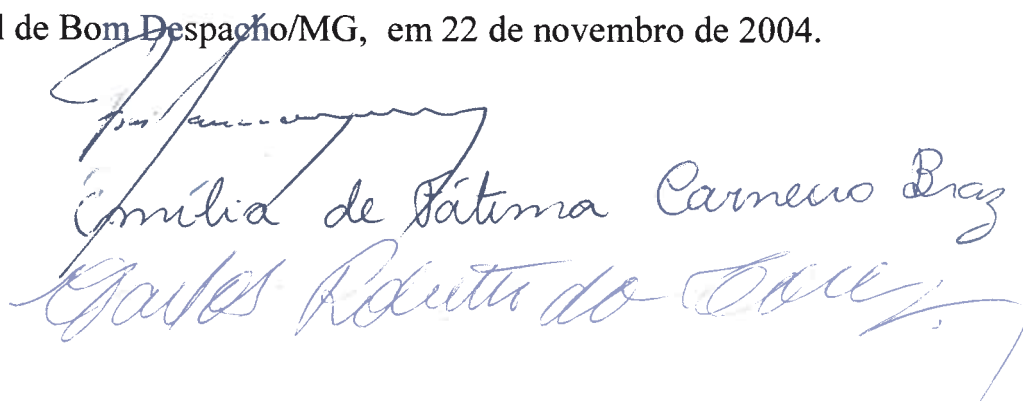 l de Bom Despacho/MG, em 22 de novembro de 2004.
Emília de Fátima Carneiro Braz
Carlos Roberto da